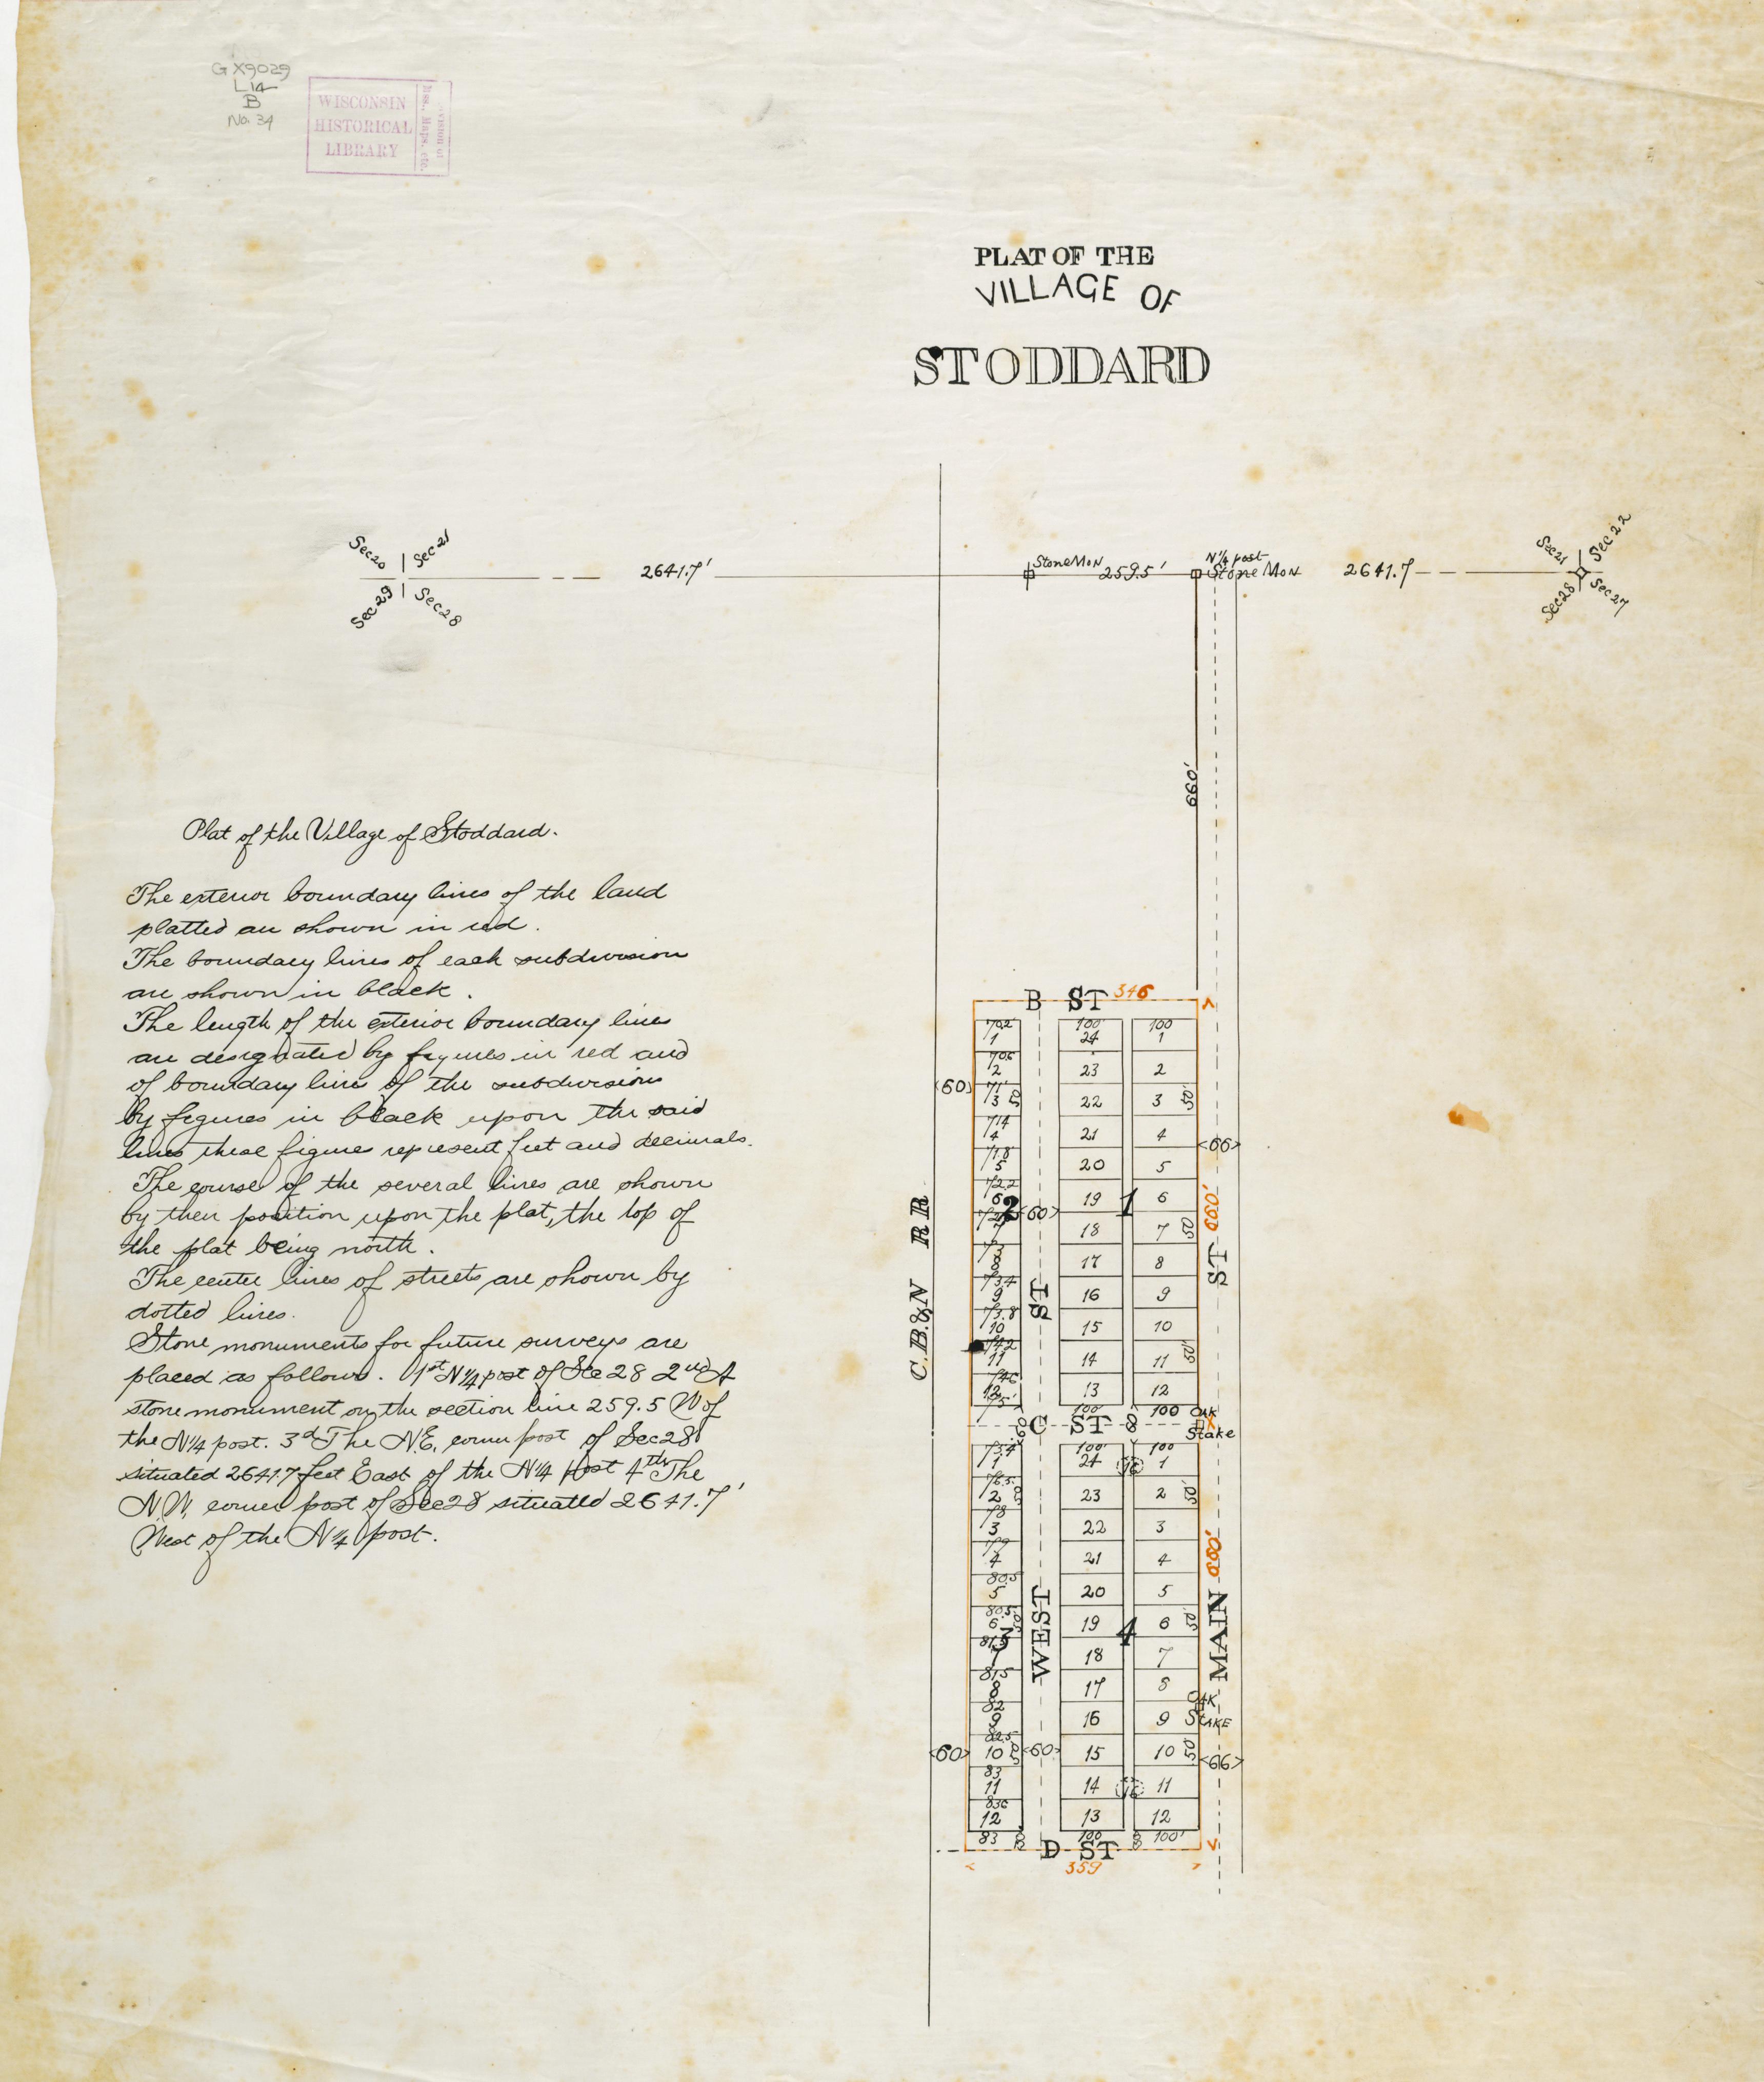 GX9029
L14
B
No. 34
WISCONSIN
HISTORICAL
LIBRARY
Mss. Maps. etc.
PLAT OF THE
VILLAGE OF
STODDARD
Sec 20
Sec 21
Sec 29
Sec 28
2641.7'
Stone Mon
259.5'
N 1/4 post
Stone Mon
2641.7
Sec 21
Sec 22
Sec 28
Sec 27
660'
Plat of the Village of Stoddard.
The exterior boundary lines of the land
platted are shown in red.
The boundary lines of each subdivision
are shown in black.
The length of the exterior boundary lines
are designated by figures in red and
of boundary lines of the subdivisions
by figures in black upon the said
lines these figures represent feet and decimals.
The course of the several lines are shown
by their position upon the plat, the top of
the plat being north.
The center lines of streets are shown by
dotted lines.
Stone monuments for future surveys are
placed as follows. 1st N 1/4 post of Sec 28 2nd A
stone monument on the section line 259.5 W of
the N 1/4 post. 3d The N.E. corner post of Sec 28
situated 2641.7 feet East of the N 1/4 post 4th The
N.W. corner post of Sec 28 situated 2641.7'
West of the N 1/4 post.
B ST 346
70.2 100' 100
1 24 1
2 23 2
3 50 22 3 50'
60
71.4
4 21 4
66
71.8
5 20 5
72.2
6 19 6
2 60 1
18 7 50'
660'
73
8 17 8
73.4
9 16 9
73.8
10 15 10
74.2
11 14 11 50'
12 13 12
100' 100
C.B.&N RR
ST
ST
C ST
60
Oak
Stake
100' 100
1 24 1
2 23 2 50'
78
3 22 3
79
4 21 4
80.5
5 20 5
80.5
6 19 6 50'
3 4
81.5
7 18 7
81.5
8 17 8
82
9 16 9
82.5
10 50' 15 10 50'
83
11 14 11
83.6
12 13 12
83 100 100'
660'
WEST
MAIN
Oak
Stake
60 60 66
D ST
359